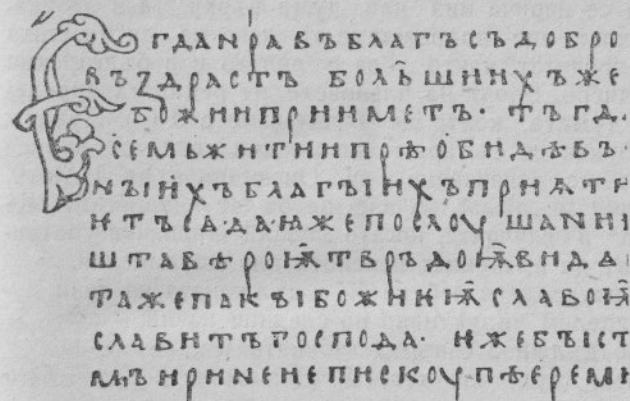 Ѥгда нравъ благъ съдобро
въздрастъ болъшинхъже
божии приметъ· тъгд
семь житии прѣобидѣвъ·
нъінхъ благъінхъ приѧти
итъсѧ· да ꙗже послоушани
шта вѣроѭ твръдоѭ вида
таже пакъі божиѭ славоѭ
славитъ господа· иже бъіст
мъ иримене пискоупѣ еремь